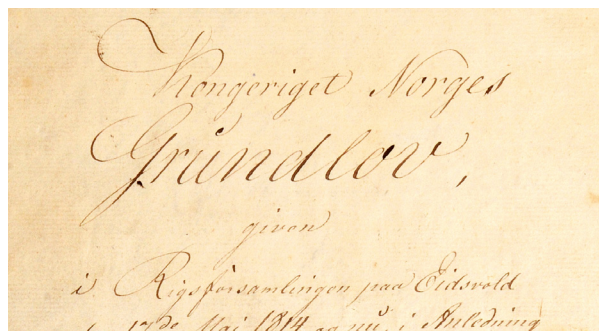 Kongeriget Norges
Grundlov,
given
i Rigsforsamlingen paa Eidsvold
17de Mai 1814 og nu, i Anledning